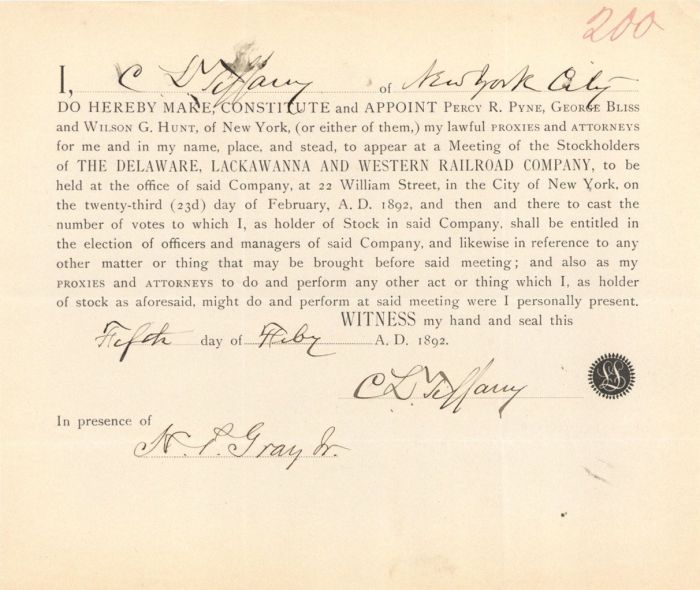 200
I, C L Tiffany of New York City
DO HEREBY MAKE, CONSTITUTE and APPOINT PERCY R. PYNE, GEORGE BLISS
and WILSON G. HUNT, of New York, (or either of them,) my lawful PROXIES and ATTORNEYS
for me and in my name, place, and stead, to appear at a Meeting of the Stockholders
of THE DELAWARE, LACKAWANNA AND WESTERN RAILROAD COMPANY, to be
held at the office of said Company, at 22 William Street, in the City of New York, on
the twenty-third (23d) day of February, A. D. 1892, and then and there to cast the
number of votes to which I, as holder of Stock in said Company, shall be entitled in
the election of officers and managers of said Company, and likewise in reference to any
other matter or thing that may be brought before said meeting; and also as my
PROXIES and ATTORNEYS to do and perform any other act or thing which I, as holder
of stock as aforesaid, might do and perform at said meeting were I personally present.
WITNESS my hand and seal this
Fifth day of Feby A. D. 1892.
C L Tiffany
LS
In presence of
N. P. Gray Jr.